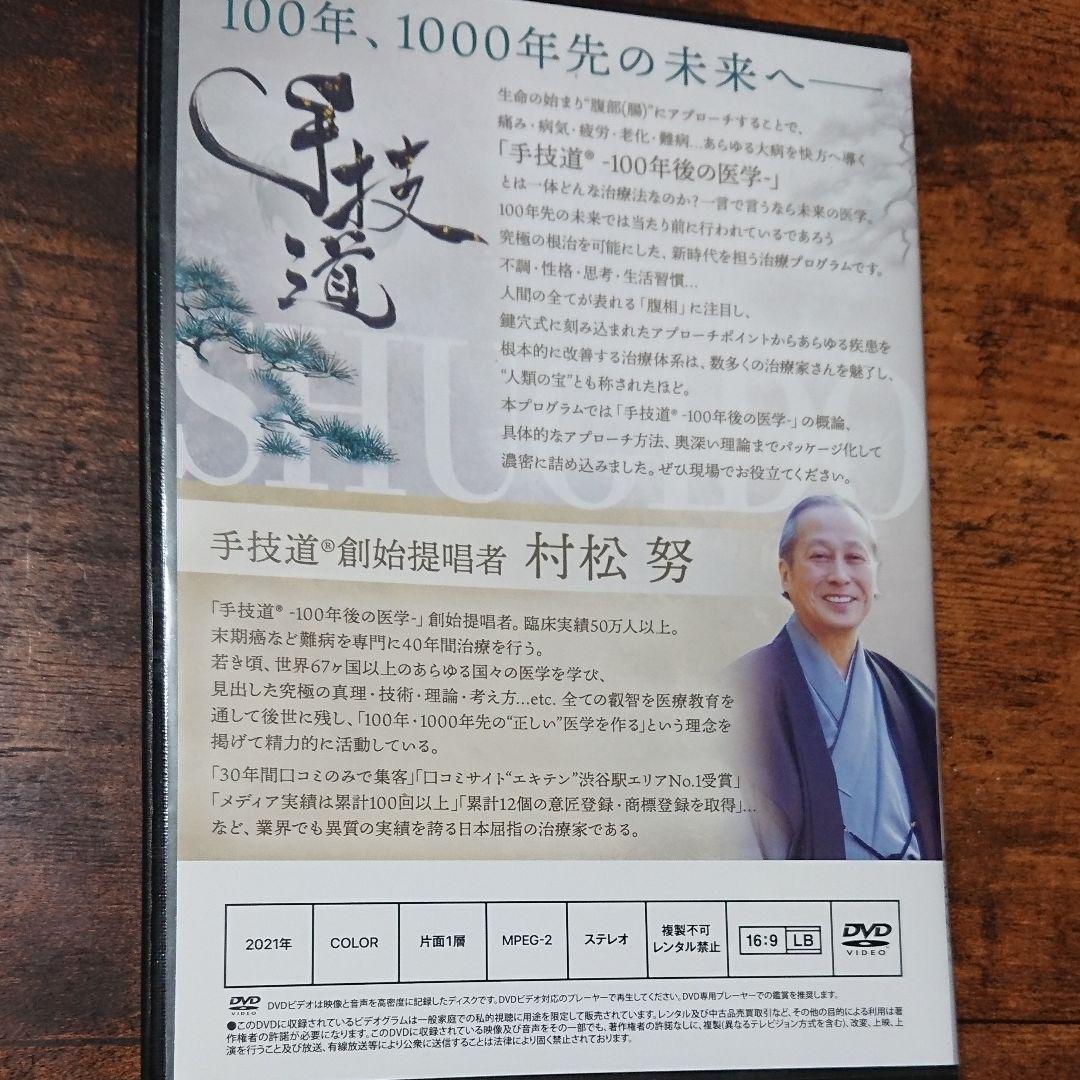 100年、1000年先の未来へ――
手技道
生命の始まり“腹部(腸)”にアプローチすることで、
痛み・病気・疲労・老化・難病...あらゆる大病を快方へ導く
「手技道® -100年後の医学-」
とは一体どんな治療法なのか?一言で言うなら未来の医学。
100年先の未来では当たり前に行われているであろう
究極の根治を可能にした、新時代を担う治療プログラムです。
不調・性格・思考・生活習慣...
人間の全てが表れる「腹相」に注目し、
鍵穴式に刻み込まれたアプローチポイントからあらゆる疾患を
根本的に改善する治療体系は、数多くの治療家さんを魅了し、
“人類の宝”とも称されたほど。
本プログラムでは「手技道® -100年後の医学-」の概論、
具体的なアプローチ方法、奥深い理論までパッケージ化して
濃密に詰め込みました。ぜひ現場でお役立てください。
SHUGIDO
手技道®創始提唱者 村松 努
「手技道® -100年後の医学-」創始提唱者。臨床実績50万人以上。
末期癌など難病を専門に40年間治療を行う。
若き頃、世界67ヶ国以上のあらゆる国々の医学を学び、
見出した究極の真理・技術・理論・考え方...etc. 全ての叡智を医療教育を
通して後世に残し、「100年・1000年先の“正しい”医学を作る」という理念を
掲げて精力的に活動している。
「30年間口コミのみで集客」「口コミサイト“エキテン”渋谷駅エリアNo.1受賞」
「メディア実績は累計100回以上」「累計12個の意匠登録・商標登録を取得」...
など、業界でも異質の実績を誇る日本屈指の治療家である。
2021年 COLOR 片面1層 MPEG-2 ステレオ 複製不可 レンタル禁止 16:9 LB DVD VIDEO
DVD VIDEO DVDビデオは映像と音声を高密度に記録したディスクです。DVDビデオ対応のプレーヤーで再生してください。DVD専用プレーヤーでの鑑賞を推奨します。
●このDVDに収録されているビデオグラムは一般家庭での私的視聴に用途を限定して販売されています。レンタル及び中古品売買取引など、その他の目的による利用は著
作権者の許諾が必要になります。このDVDに収録されている映像及び音声をその一部でも、著作権者の許諾なしに、複製(異なるテレビジョン方式を含む)、改変、上映、上
演を行うこと及び放送、有線放送等により公衆に送信することは法律により固く禁止されております。